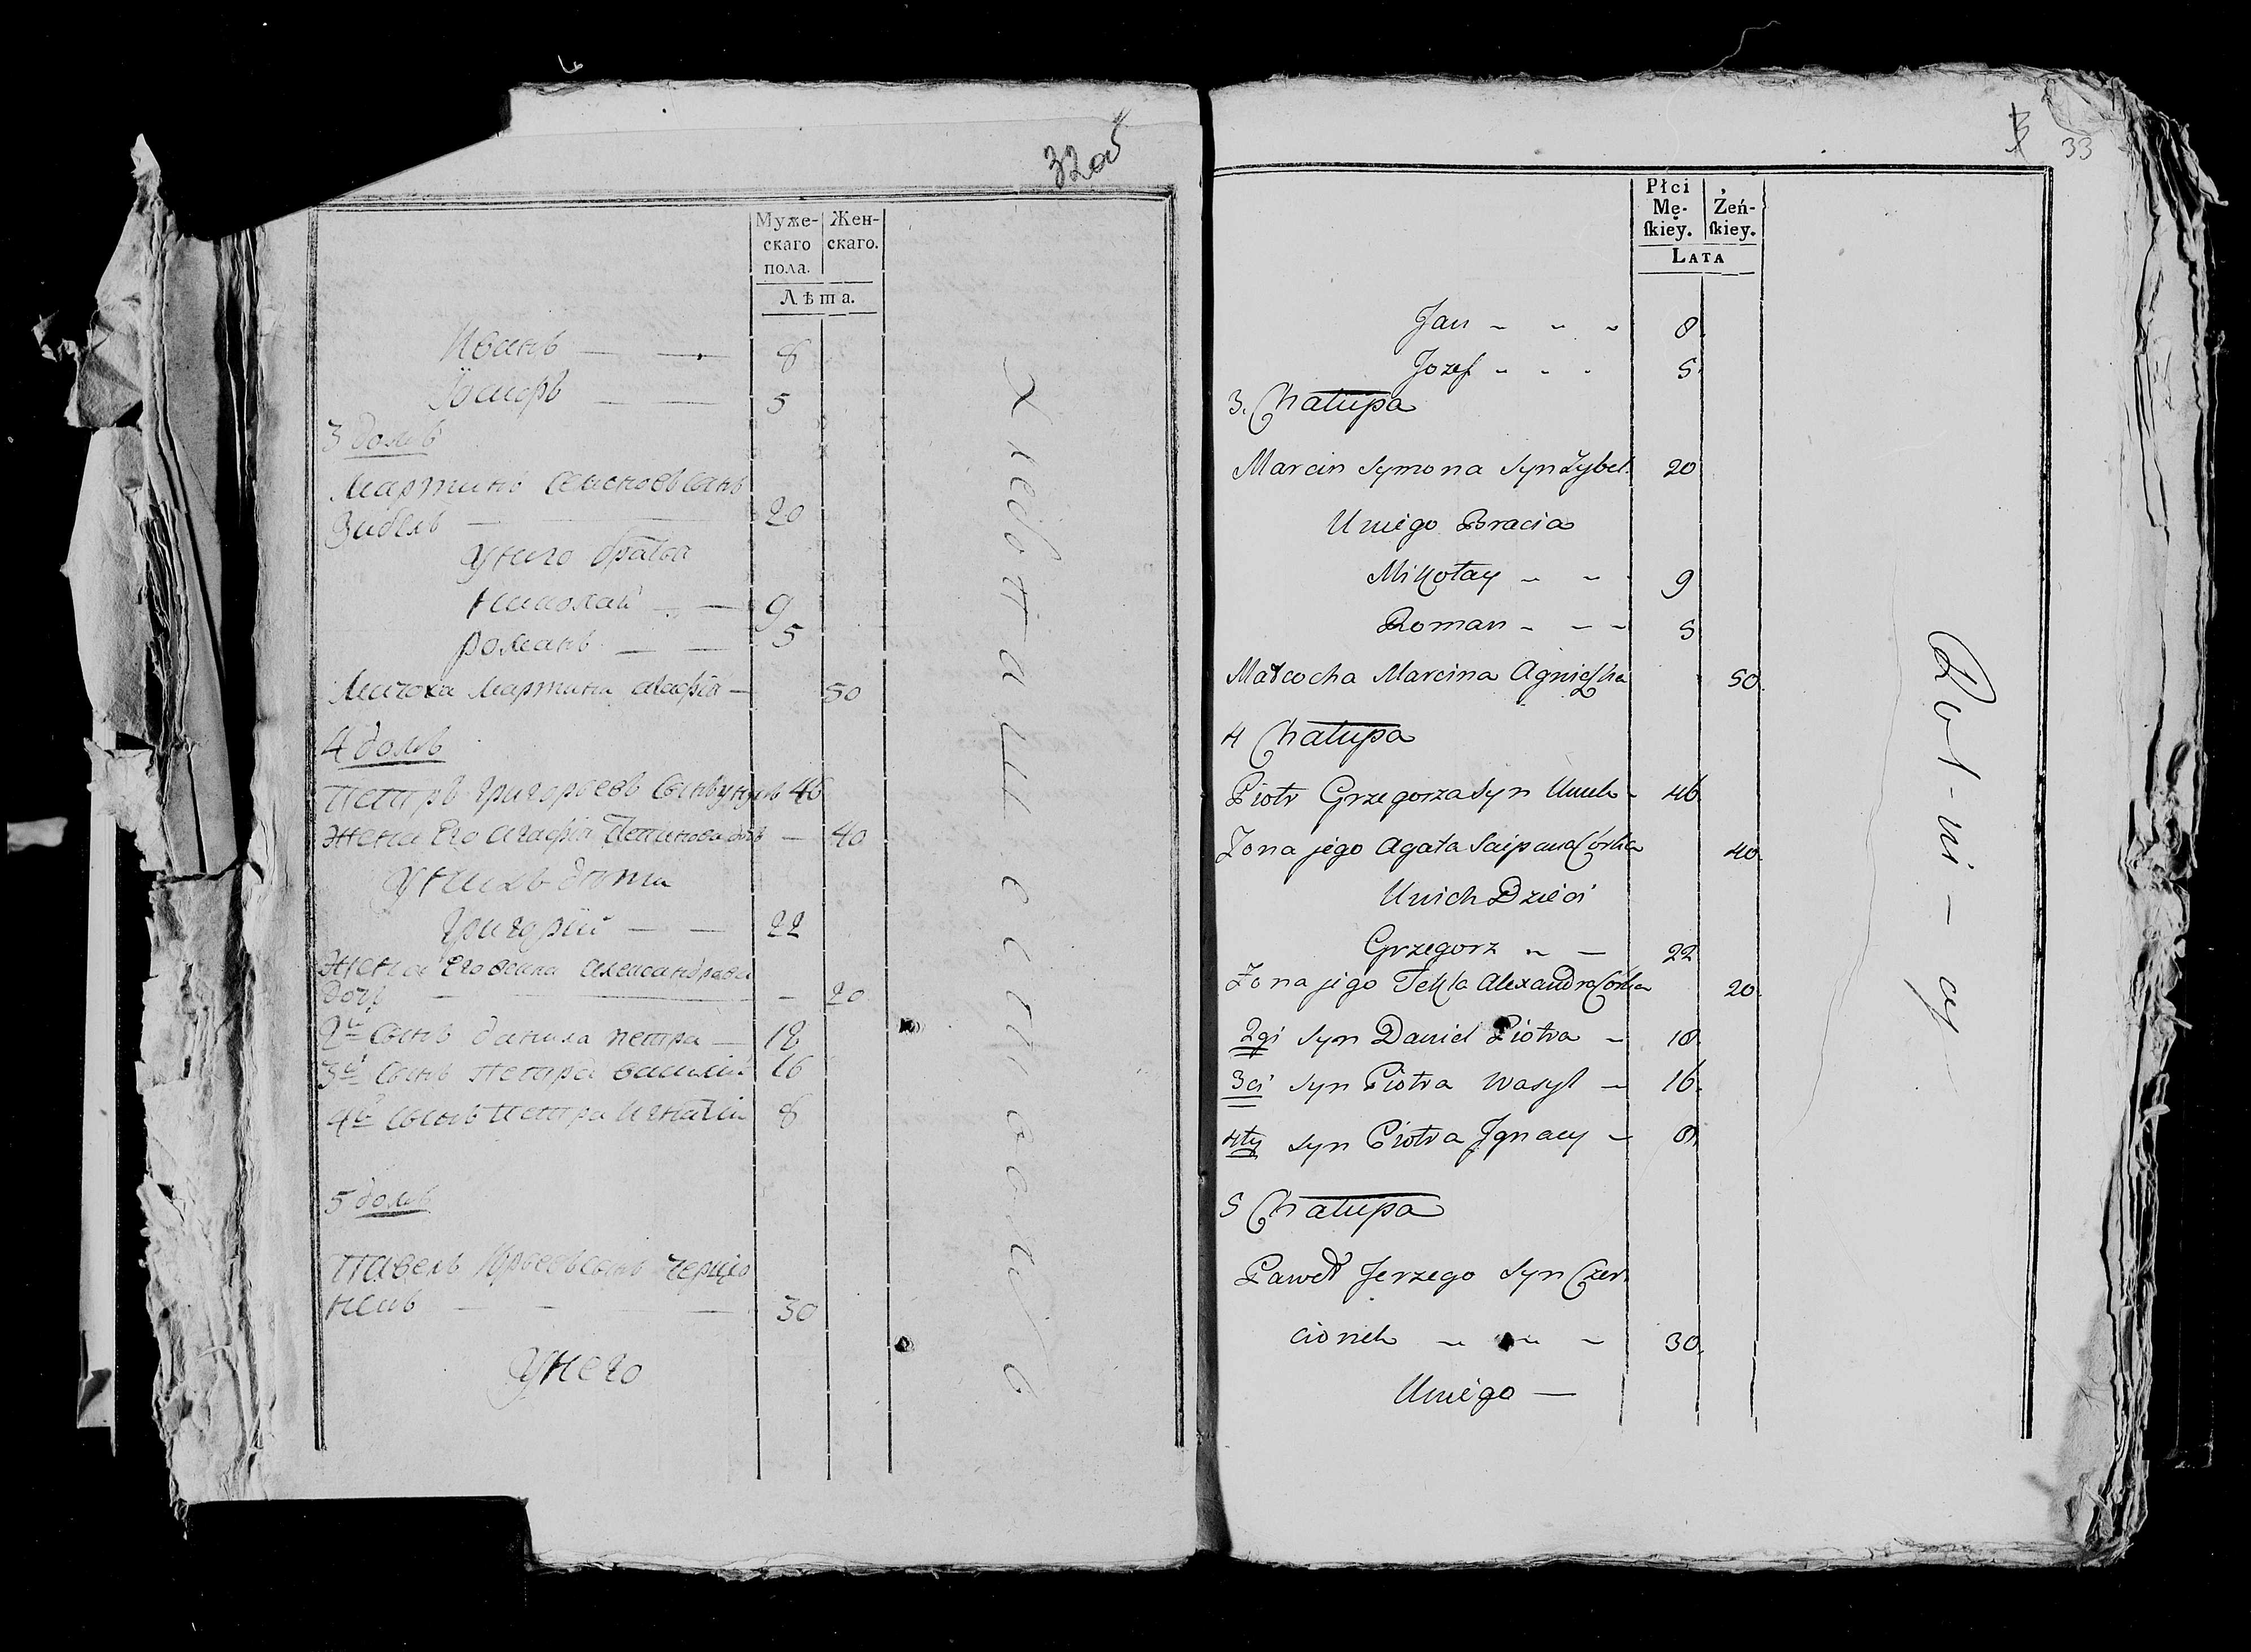 32об
Муже-
скаго
пола.
Жен-
скаго.
Лѣта.
Иванъ — — 8
Іосифъ — — 5
3 домъ
Мартинъ Семеновъ сынъ
Зибель — 20
У него братья
Николай — — 9
Романъ — — 5
Мачоха Мартина Агафія — 50
4 домъ
Петръ Григорьевъ сынъ 46
Жена Его Агафія — 40
У нихъ дети
Григорій — — 22
Жена Его Александрова
дочь — — — 20
2й сынъ Данила Петра — 18
3й сынъ Петра Василій 16
4й сынъ Петра Игнатій 8
5 домъ
Павелъ Юрьевъ сынъ Черціо
некъ — — — 30
У него
33
Płci
Mę-
ſkiey.
Żeń-
ſkiey.
LATA
Jan - - - 8.
Jozef - - - 5.
3. Chałupa
Marcin Symona Syn Zybel. 20
U niego Bracia
Mikołay - - - 9
Roman - - - 5
Małcocha Marcina Agnieſzka 50.
4 Chałupa
Piotr Grzegorza Syn Unuk - 46.
Żona jego Agata Córka 40.
U nich Dzieci
Grzegorz - — 22
Żona jego Tekla Alexandra Córka 20.
2gi Syn Daniel Piotra - 18.
3ci Syn Piotra Wasyl - 16.
4ty Syn Piotra Jgnacy - 8.
5 Chałupa
Paweł Jerzego Syn Czer
cionek - - - 30.
U niego —
Rol-ni-cy